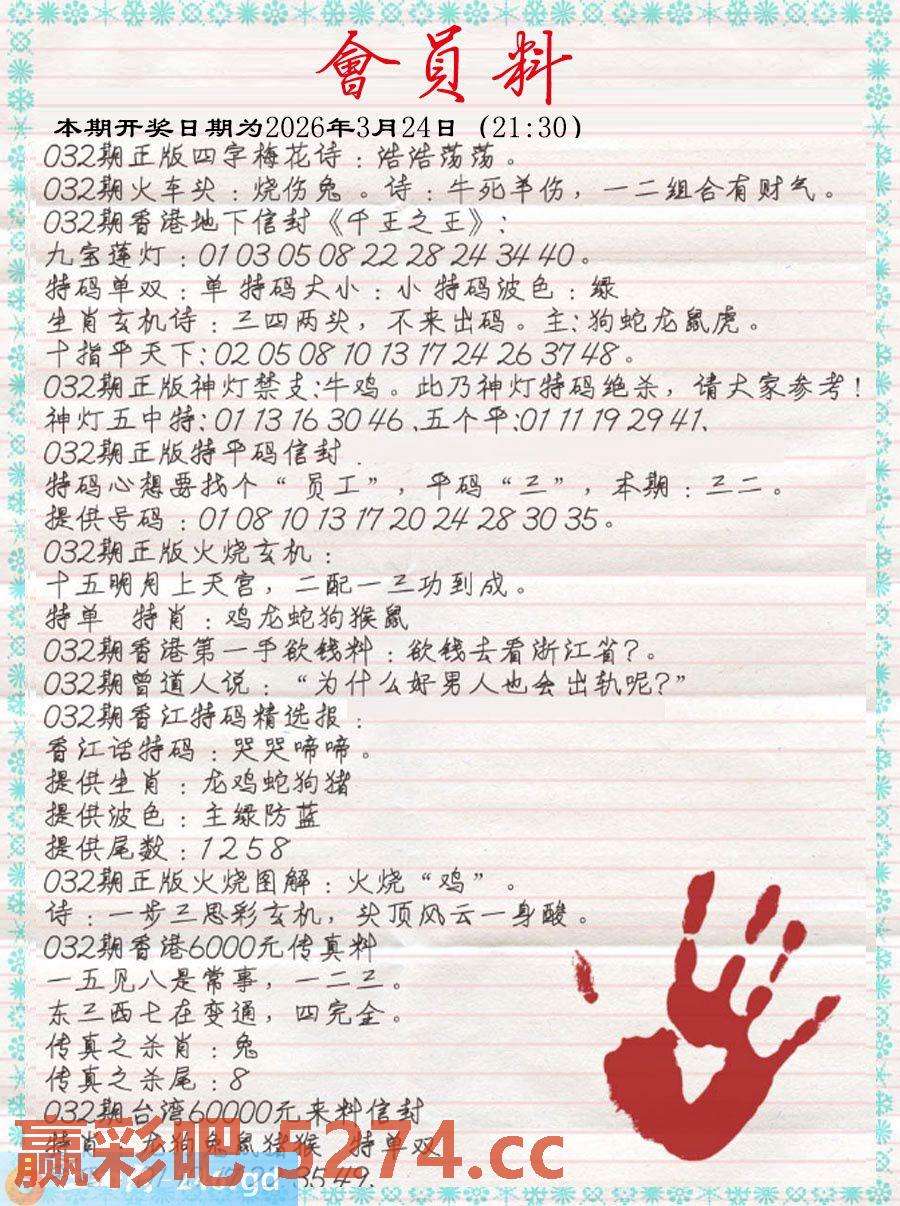 會員料
本期开奖日期为2026年3月24日（21:30）
032期正版四字梅花诗：浩浩荡荡。
032期火车头：烧伤兔 。诗：牛死羊伤，一二组合有财气。
032期香港地下信封《千王之王》：
九宝莲灯：01 03 05 08 22 28 24 34 40。
特码单双：单 特码大小：小 特码波色：绿
生肖玄机诗：三四两头，不来出码。主：狗蛇龙鼠虎。
十指平天下：02 05 08 10 13 17 24 26 37 48。
032期正版神灯禁支:牛鸡。此乃神灯特码绝杀，请大家参考！
神灯五中特：01 13 16 30 46、五个平:01 11 19 29 41、
032期正版特平码信封.
特码心想要找个“员工”，平码“三”，本期：三二。
提供号码：01 08 10 13 17 20 24 28 30 35。
032期正版火烧玄机：
十五明月上天宫，二配一三功到成。
特单 特肖：鸡龙蛇狗猴鼠
032期香港第一手欲钱料：欲钱去看浙江省?。
032期曾道人说：“为什么好男人也会出轨呢?”
032期香江特码精选报：
香江话特码：哭哭啼啼。
提供生肖：龙鸡蛇狗猪
提供波色：主绿防蓝
提供尾数：1 2 5 8
032期正版火烧图解：火烧“鸡”。
诗：一步三思彩玄机，头顶风云一身酸。
032期香港6000元传真料
一五见八是常事，一二三。
东三西七在变通，四完金。
传真之杀肖：兔
传真之杀尾：8
032期台湾60000元来料信封
特肖：龙狗兔鼠猪猴 特单双
35 49.
赢彩吧.5274.cc